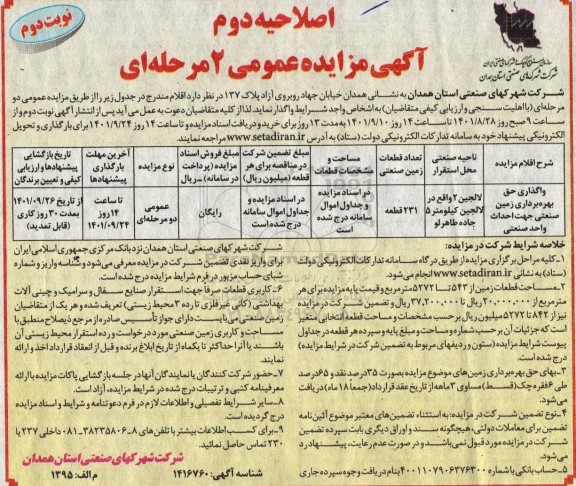 اصلاحیه دوم
نوبت دوم
آگهی مزایده عمومی ۲ مرحله‌ای
شرکت شهرکهای صنعتی استان همدان
شرکت شهرکهای صنعتی استان همدان به نشانی همدان خیابان جهاد روبروی آزاد پلاک ۱۳۷ در نظر دارد اقلام مندرج در جدول زیر را از طریق مزایده عمومی دو
مرحله‌ای (با اهلیت سنجی و ارزیابی کیفی متقاضیان) به اشخاص واجد شرایط واگذار نماید. لذا از کلیه متقاضیان دعوت به عمل می آید پس از انتشار آگهی نوبت دوم و از
ساعت ۹ صبح روز ۱۴۰۱/۸/۲۸ تا ساعت ۱۴ روز ۱۴۰۱/۹/۱۰ به مدت ۱۳ روز برای خرید و دریافت اسناد مزایده و تا ساعت ۱۴ روز ۱۴۰۱/۹/۲۴ برای بارگذاری و تحویل
الکترونیکی پیشنهاد خود به سامانه تدارکات الکترونیکی دولت (ستاد) به آدرس www.setadiran.ir مراجعه نمایند.
شرح اقلام مزایده | ناحیه صنعتی محل استقرار | تعداد قطعات زمین صنعتی | مساحت و مشخصات قطعات | مبلغ تضمین شرکت در مناقصه برای هر قطعه (میلیون ریال) | مبلغ فروش اسناد مزایده (پرداخت در سامانه) – ریال | نوع مزایده | آخرین مهلت بارگذاری پیشنهادها | تاریخ بازگشایی پیشنهادها و ارزیابی کیفی و تعیین برندگان
واگذاری حق بهره‌برداری زمین صنعتی جهت احداث واحد صنعتی | لالجین ۲ واقع در لالجین کیلومتر ۵ جاده طاهرلو | ۲۳۱ قطعه | در اسناد مزایده و جداول اموال سامانه درج شده است | در اسناد مزایده و جداول اموال سامانه درج شده است | رایگان | عمومی دو مرحله‌ای | تا ساعت ۱۴ روز ۱۴۰۱/۰۹/۲۴ | از تاریخ ۱۴۰۱/۰۹/۲۶ بمدت ۳۰ روز کاری (قابل تمدید)
خلاصه شرایط شرکت در مزایده:
۱-کلیه مراحل برگزاری مزایده از طریق درگاه سامانه تدارکات الکترونیکی دولت
(ستاد) به نشانی www.setadiran.ir انجام می‌شود.
۲-مساحت قطعات زمین از ۵۴۳ تا ۵۲۷۲ مترمربع و قیمت پایه مزایده برای هر
مترمربع از ۲۰,۰۰۰,۰۰۰ ریال تا ۳۷,۲۰۰,۰۰۰ ریال و تضمین شرکت در مزایده
نیز از ۸۴۲ تا ۵۲۷۲ میلیون ریال بر حسب مشخصات و مساحت قطعه انتخابی متغیر
است که جزئیات آن بر حسب شماره و مساحت و مبلغ پایه و سپرده هر قطعه در جداول
پیوست شرایط مزایده (ستون و ردیفهای مربوط به تضمین شرکت در شرایط مزایده)
درج شده است.
۳-بهای حق بهره‌برداری زمین‌های موضوع مزایده بصورت ۳۵ درصد نقد و ۶۵ درصد
طی ۶ فقره چک (قسط) مساوی ۳ ماهه از تاریخ عقد قرارداد (جمعا ۱۸ ماه) دریافت
می‌شود.
۴-نوع تضمین شرکت در مزایده: به استثناء تضمین های معتبر موضوع آئین نامه
تضمین برای معاملات دولتی، هیچگونه سند و اوراق دیگری بابت سپرده تضمین
شرکت در مزایده مورد قبول نمی‌باشد و در صورت عدم رعایت، پیشنهاد رد
می‌شود.
۵-حساب بانکی با شماره ۴۰۰۱۱۰۷۹۰۶۳۷۶۳۰۰ بنام دریافت وجوه سپرده جاری
شرکت شهرکهای صنعتی استان همدان نزد بانک مرکزی جمهوری اسلامی ایران
برای واریز نقدی تضمین شرکت در مزایده معرفی می‌شود و شناسه واریز و شماره
شبای حساب مزبور در فرم شرایط مزایده درج شده است.
۶-کاربری قطعات صرفا جهت استقرار صنایع سفال و سرامیک و چینی آلات
بهداشتی (کانی غیرفلزی تا رده ۳ محیط زیستی) تعریف شده و هر یک از متقاضیان
زمین صنعتی می‌بایست دارای جواز تأسیس صادره از مرجع ذیصلاح منطبق با
مساحت و کاربری زمین صنعتی مورد درخواست و رده استقرار محیط زیستی آن
باشند یا آنرا حداکثر تا یکماه از تاریخ ابلاغ برنده و قبل از انعقاد قرارداد اخذ و ارائه
نمایند.
۷-حضور شرکت کنندگان یا نمایندگان آنها در جلسه بازگشایی پاکات مزایده با ارائه
معرفینامه کتبی و ترتیبات درج شده در شرایط مزایده، آزاد است.
۸-سایر شرایط تفصیلی و اطلاعات لازم در فرم دعوتنامه و شرایط و اسناد مزایده
درج گردیده است.
۹-برای کسب اطلاعات بیشتر با تلفن های ۸-۳۸۲۳۵۸۰۶-۰۸۱ داخلی ۲۳۷ یا
۲۳۰ تماس حاصل نمائید.
شرکت شهرکهای صنعتی استان همدان
شناسه آگهی: ۱۴۱۶۷۶۰
م الف: ۱۳۹۵